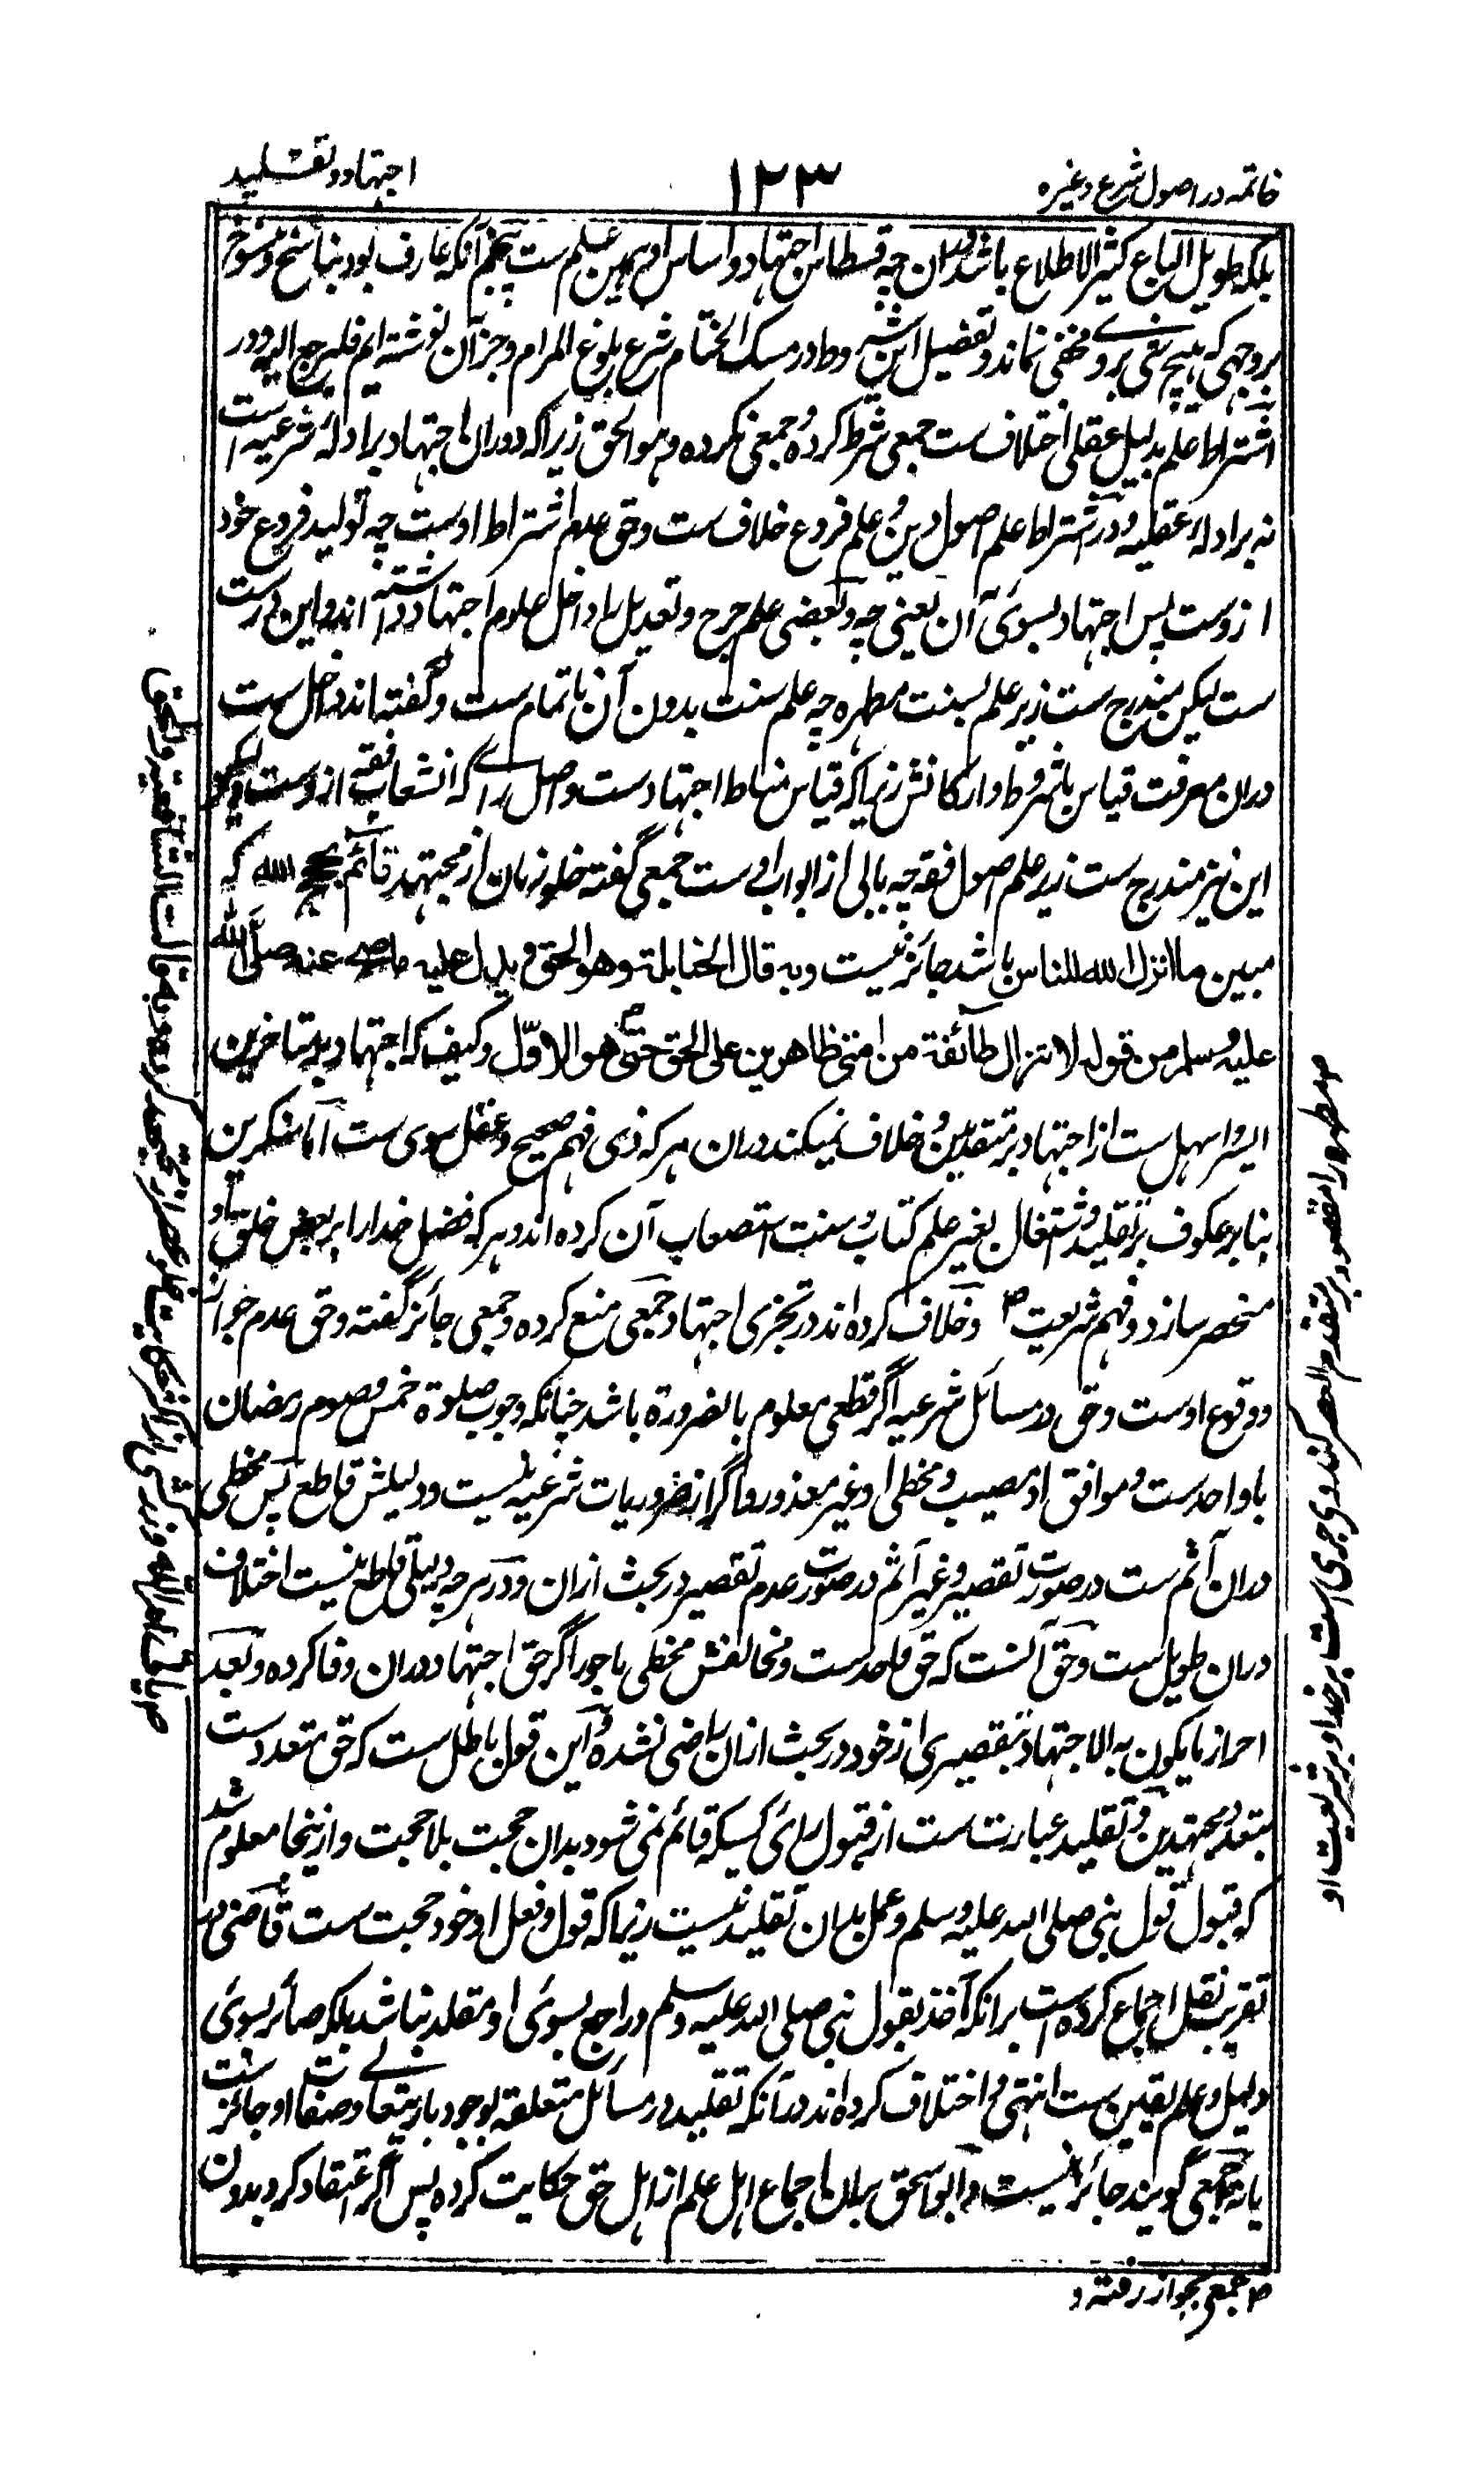 خاتمه در اصول شرع وغیره
۱۲۳
اجتهاد و تقلید
بلکه طویل الباع کثیر الاطلاع باشد دران چه قسطاس اجتهاد و اساس او همین علم ست پنجم آنکه عارف بود بناسخ و منسوخ
بروجهی که هیچ شی بروی مخفی نماند و تفصیل این شروط در مسک الختام شرح بلوغ المرام و جزآن نوشته ایم فلیرجع الیه و در
اشتراط علم بدلیل عقلی اختلاف ست جمعی شرط کرده و جمعی نکرده و هو الحق زیراکه دوران اجتهاد بر ادلهٔ شرعیه است
نه بر ادلهٔ عقلیه و در اشتراط علم اصول دین و علم فروع خلاف ست و حق عدم اشتراط اوست چه تولید فروع خود
ازوست پس اجتهاد بسوی آن یعنی چه و بعضی علم جرح و تعدیل را داخل علوم اجتهاد داشته اند و این درست
ست لیکن مندرج ست زیر علم بسنت مطهره چه علم سنت بدون آن ناتمام ست و گفته اند داخل ست
دران معرفت قیاس با شروط و ارکانش زیراکه قیاس مناط اجتهادست و اصل رای که انشعاب فقه ازوست لیکن
این نیز مندرج ست زیر علم اصول فقه چه بابی از ابواب اوست جمعی گفته خلو زمان از مجتهد قائم بحجج الله که
مبین ما انزل الله للناس باشد جائز نیست وبه قال الحنابلة وهو الحق ویدل علیه ما صح عنه صلی الله
علیه وسلم من قوله لا تزال طائفة من امتی ظاهرین علی الحق حتی هو الاول و کیف که اجتهاد بر متاخرین
ایسر و اسهل ست از اجتهاد بر متقدمین و خلاف نمیکند دران هر که ذی فهم صحیح و عقل سوی ست آما منکرین
بنابر عکوف بر تقلید و اشتغال بغیر علم کتاب و سنت استصعاب آن کرده اند و هر که فضل خدا را بر بعض خلق او
منحصر سازد و فهم شریعت ۳ و خلاف کرده اند در تجزی اجتهاد جمعی منع کرده و جمعی جائز گفته و حق عدم جواز
و وقوع اوست و حق در مسائل شرعیه اگر قطعی معلوم بالضرورة باشد چنانکه وجوب صلوة خمس و صوم رمضان
با واحدست و موافق او مصیب و مخطی او غیر معذور و اگر از ضروریات شرعیه نیست و دلیلش قاطع پس مخطی
دران آثم ست در صورت تقصیر و غیر آثم در صورت عدم تقصیر در بحث ازان و در هر چه دلیلی قاطع نیست اختلاف
دران طویل ست و حق آنست که حق واحدست و مخالفش مخطی ماجور اگر حق اجتهاد دران وفا کرده و بعد
احراز ما یکون به الاجتهاد بتقصیری از خود در بحث ازان راضی نشده و این قول باطل ست که حق متعددست
بتعدد مجتهدین و تقلید عبارت ست از قبول رای کسیکه قائم نمی شود بدان حجت بلا حجت و ازینجا معلوم شد
که قبول قول نبی صلی الله علیه وسلم و عمل بدان تقلید نیست زیراکه قول و فعل او خود حجت ست قاضی در
تقریب نقل اجماع کرده است برانکه آخذ بقول نبی صلی الله علیه وسلم و راجع بسوی او مقلد نباشد بلکه صائر بسوی
دلیل و علم یقین ست انتهی و اختلاف کرده اند در آنکه تقلید در مسائل متعلقه بوجود باری تعالی و صفات او جائز است
یا نه جمعی گویند جائز نیست و ابو اسحق بران اجماع اهل علم از اهل حق حکایت کرده پس اگر اعتقاد کرد بدون
۳ جمعی بجواز رفته و
۳ مطهر را مقصود بر متقدم العصر کند وی جری است بر خدا و بر شریعت او